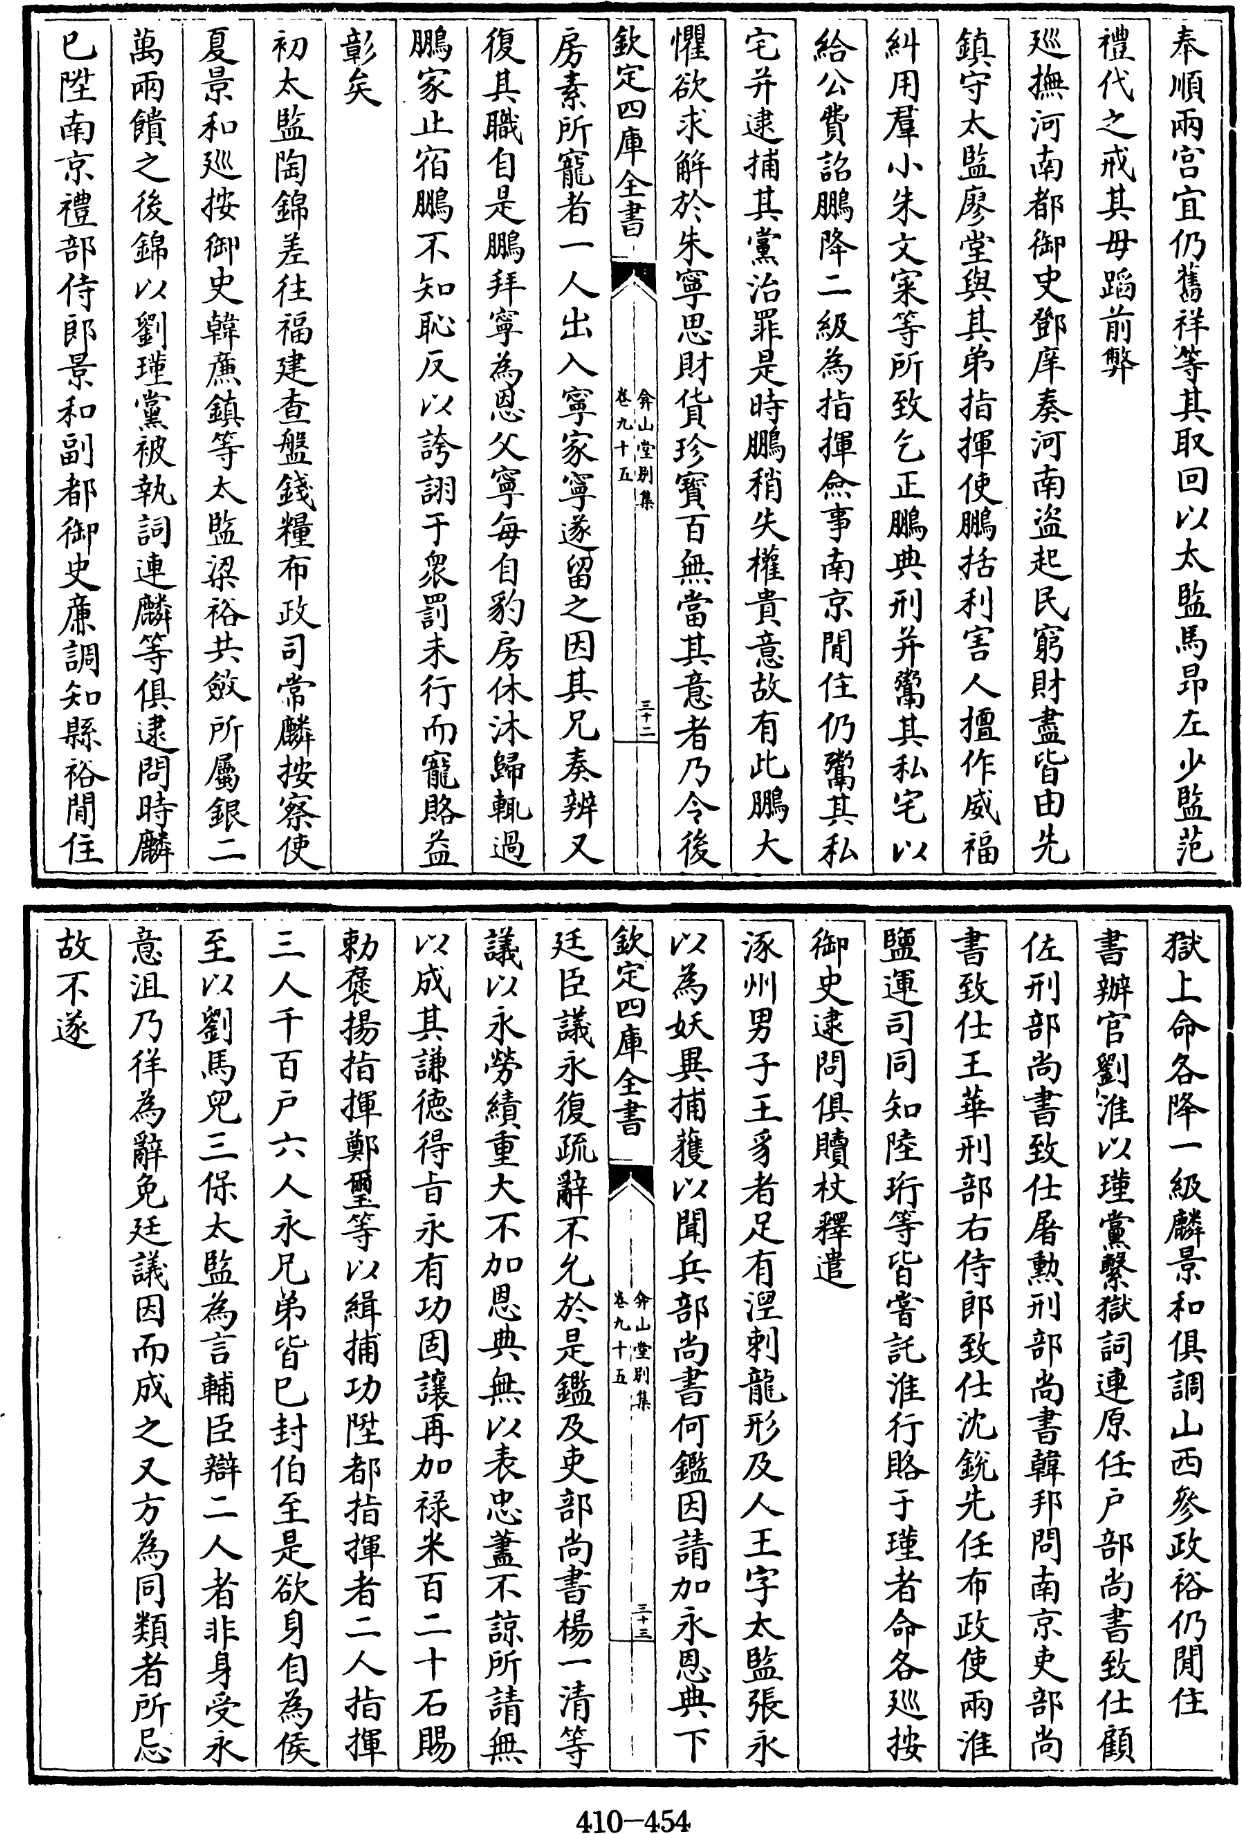 奉順兩宫宜仍舊祥等其取回以太監馬昂左少監范
禮代之戒其毋蹈前弊
廵撫河南都御史鄧庠奏河南盗起民窮財盡皆由先
鎮守太監廖堂與其弟指揮使鵬括利害人擅作威福
糾用羣小朱文寀等所致乞正鵬典刑并鬻其私宅以
給公費詔鵬降二級為指揮僉事南京閒住仍鬻其私
宅并逮捕其黨治罪是時鵬稍失權貴意故有此鵬大
懼欲求解於朱寧思財貨珍寳百無當其意者乃令後
欽定四庫全書
弇山堂别集
卷九十五
三十二
房素所寵者一人出入寧家寧遂留之因其兄奏辨又
復其職自是鵬拜寧為恩父寧每自豹房休沐歸輒過
鵬家止宿鵬不知恥反以誇詡于衆罰未行而寵賂益
彰矣
初太監陶錦差往福建查盤錢糧布政司常麟按察使
夏景和廵按御史韓亷鎮等太監梁裕共斂所屬銀二
萬兩饋之後錦以劉瑾黨被執詞連麟等俱逮問時麟
已陞南京禮部侍郎景和副都御史亷調知縣裕閒住
獄上命各降一級麟景和俱調山西參政裕仍閒住
書辦官劉淮以瑾黨繫獄詞連原任户部尚書致仕顧
佐刑部尚書致仕屠勲刑部尚書韓邦問南京吏部尚
書致仕王華刑部右侍郎致仕沈銳先任布政使兩淮
鹽運司同知陸珩等皆嘗託淮行賂于瑾者命各廵按
御史逮問俱贖杖釋遣
涿州男子王豸者足有湼刺龍形及人王字太監張永
以為妖異捕獲以聞兵部尚書何鑑因請加永恩典下
欽定四庫全書
弇山堂别集
卷九十五
三十三
廷臣議永復疏辭不允於是鑑及吏部尚書楊一清等
議以永勞績重大不加恩典無以表忠藎不諒所請無
以成其謙徳得旨永有功固讓再加禄米百二十石賜
勅褒揚指揮鄭璽等以緝捕功陞都指揮者二人指揮
三人千百户六人永兄弟皆已封伯至是欲身自為侯
至以劉馬兒三保太監為言輔臣辯二人者非身受永
意沮乃佯為辭免廷議因而成之又方為同類者所忌
故不遂
410-454